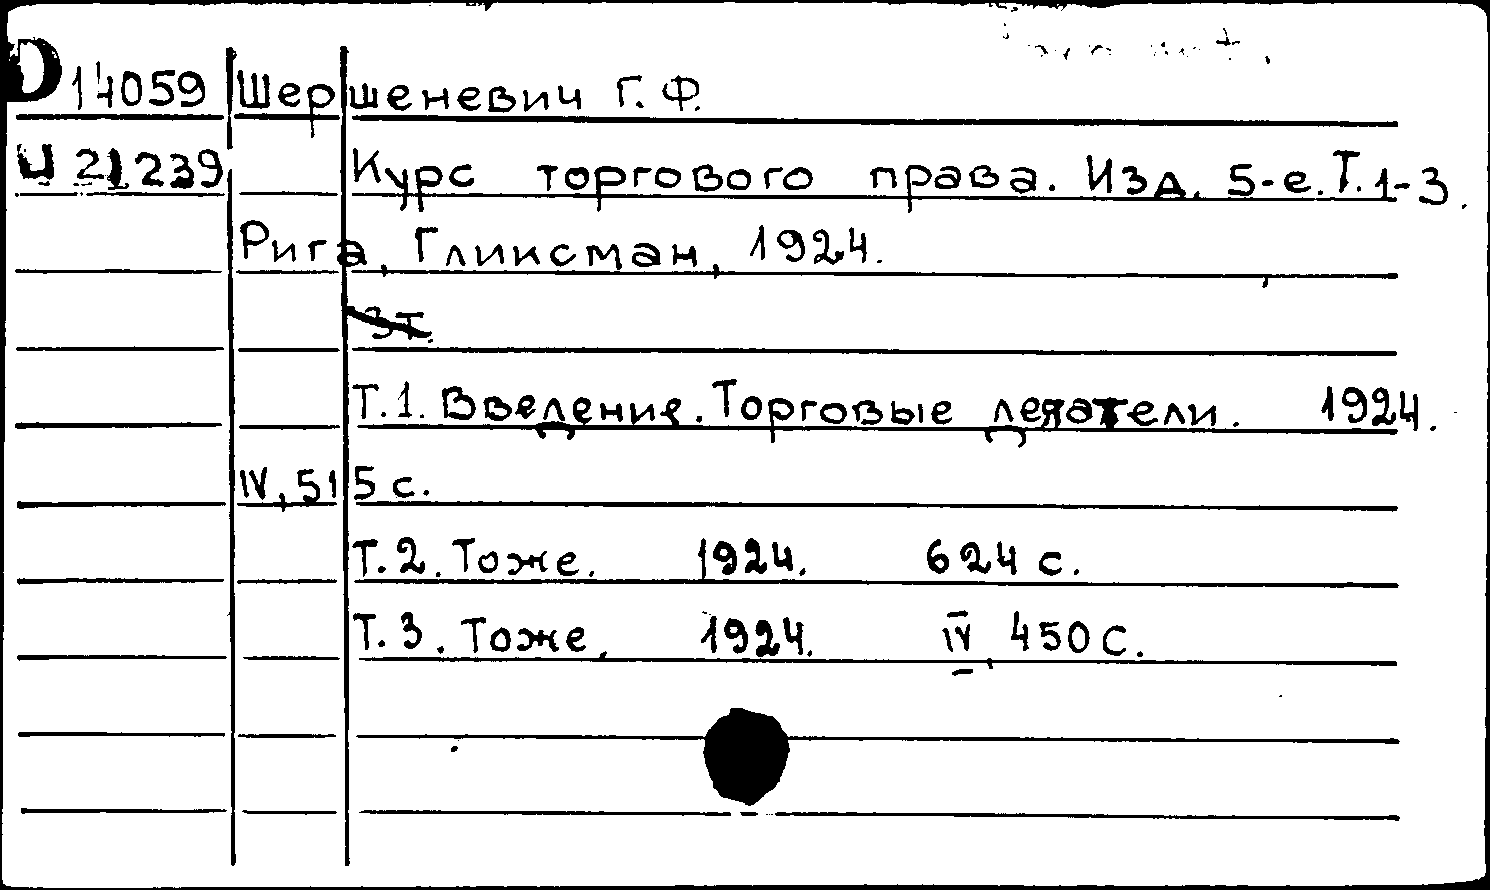 D 14059 Шершеневич Г. Ф.
И 21239 Курс торгового права. Изд. 5-е. Т. 1-3.
Рига, Гликсман, 1924.
3т.
Т. 1. Введение. Торговые деятели. 1924.
IV, 515 с.
Т. 2. Тоже. 1924. 624 с.
Т. 3. Тоже, 1924. IV, 450 С.